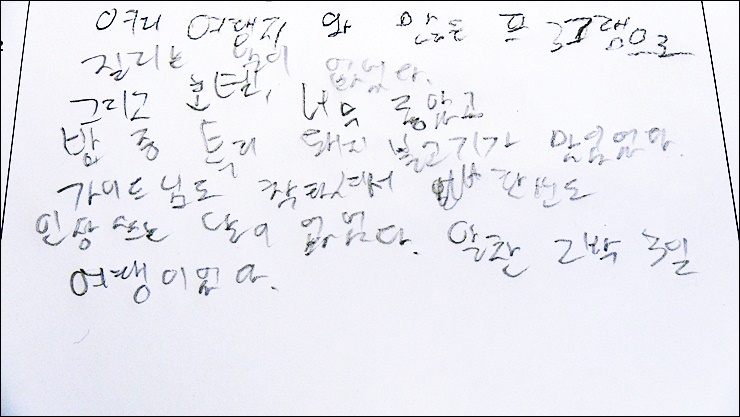 여러 여행지 와 많은 프로그램으로
질리는 일이 없었다.
그리고 호텔, 너무 좋았고
밤 중 특히 돼지 불고기가 맛있었다.
가이드님도 착하셔서 한번도
인상 쓰는 날이 없었다. 알찬 2박 3일
여행이었다.